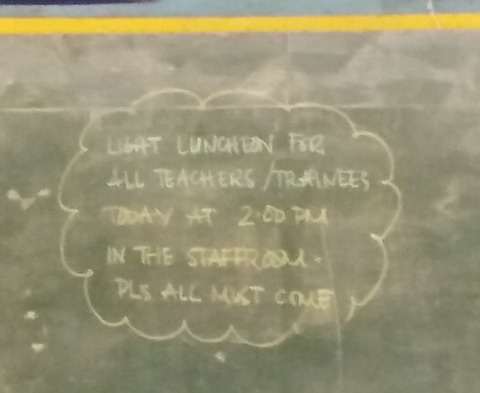 LIGHT LUNCHEON FOR
ALL TEACHERS/TRAINEES
TODAY AT 2.00 PM
IN THE STAFFROOM.
PLS ALL MUST COME